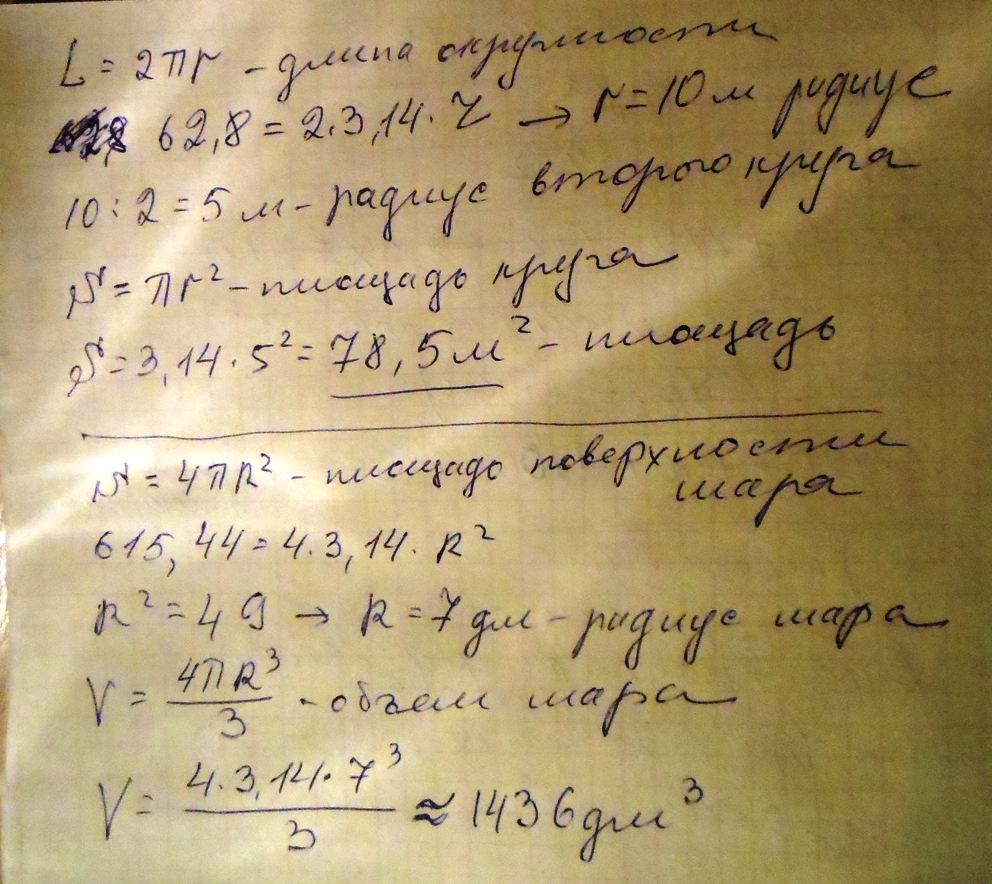 L = 2πr - длина окружности
62,8 = 2·3,14·r → r = 10 м радиус
10 : 2 = 5 м - радиус второго круга
S = πr² - площадь круга
S = 3,14·5² = 78,5 м² - площадь
S = 4πR² - площадь поверхности
шара
615,44 = 4·3,14·R²
R² = 49 → R = 7 дм - радиус шара
V = 4πR³/3 - объем шара
V = 4·3,14·7³/3 ≈ 1436 дм³